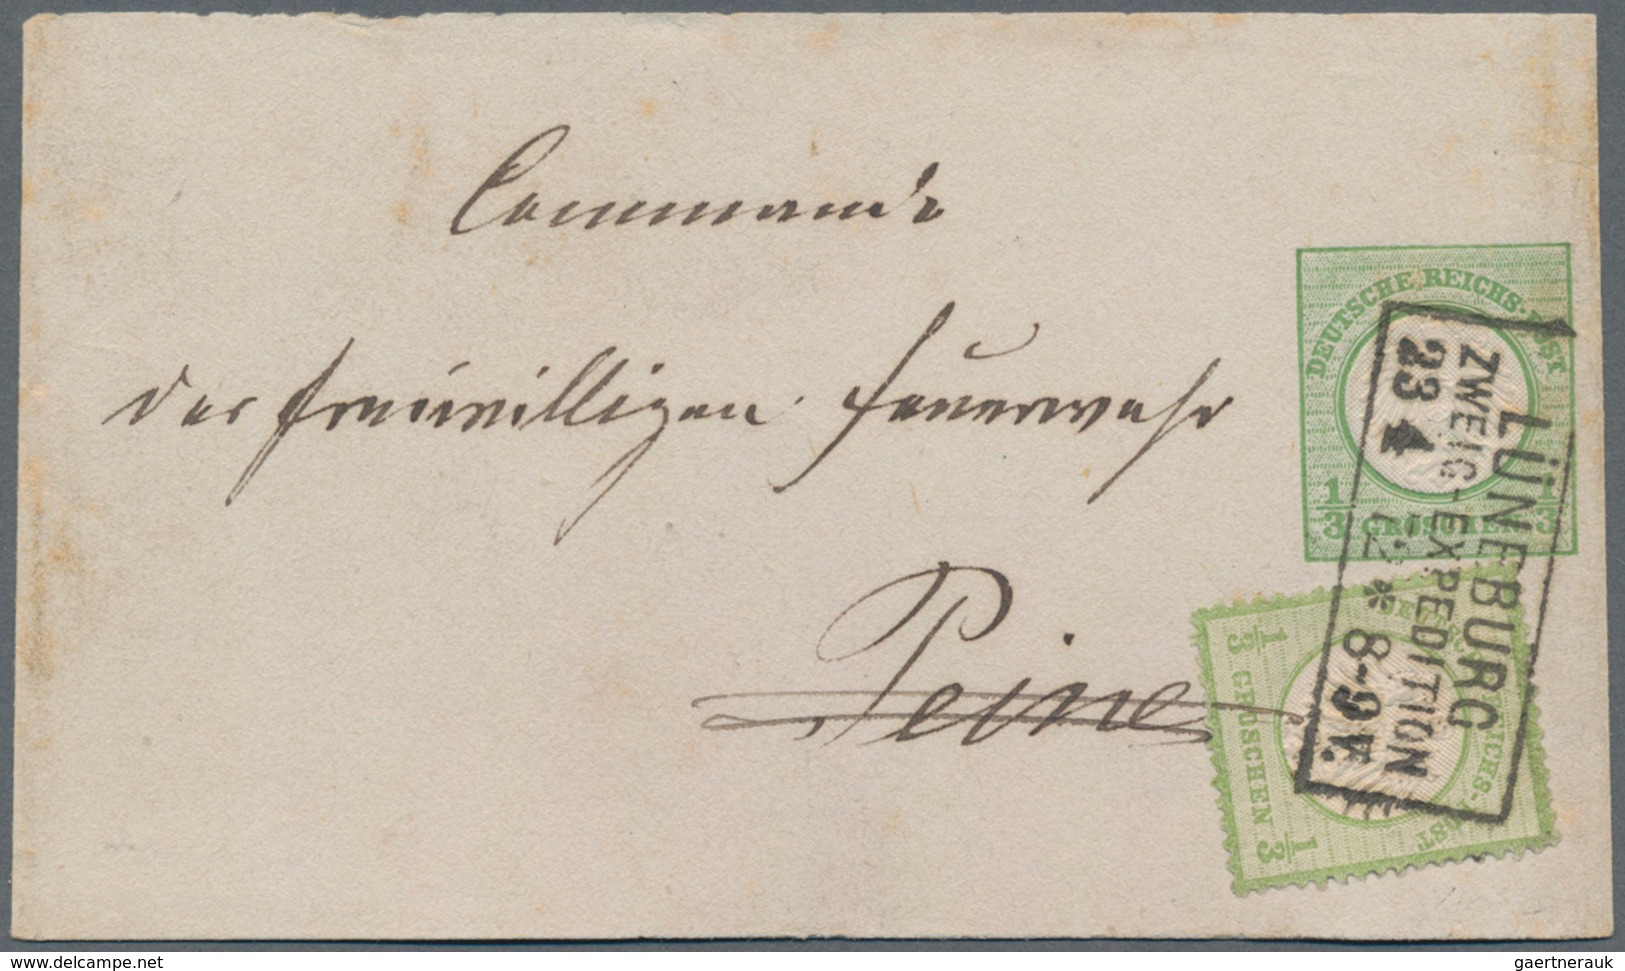 Commando
der freiwilligen Feuerwehr
Peine
DEUTSCHE REICHS-POST
1/3 GROSCHEN 1/3
LÜNEBURG
ZWEIG-EXPEDITION
23 4 * 8-9 A.
REICHS-POST
1/3 GROSCHEN 1/3
www.delcampe.net
gaertnerauk